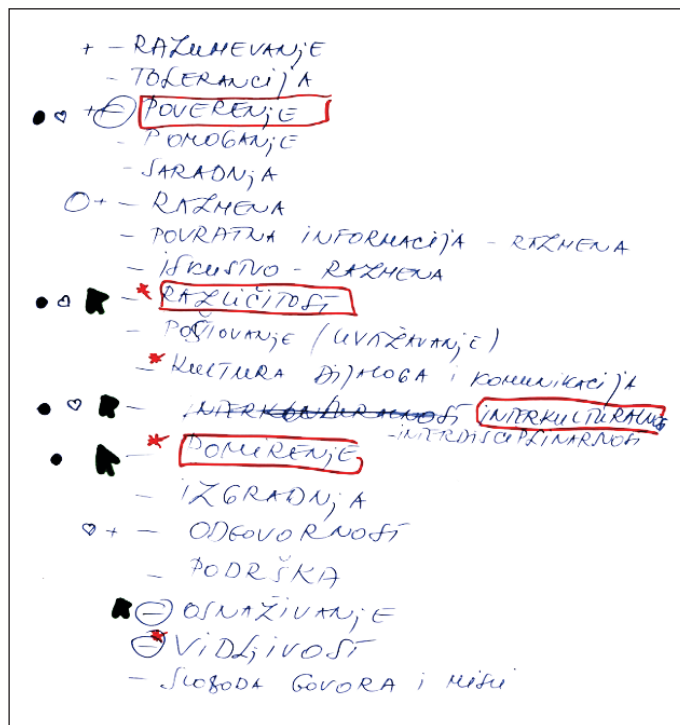 + - RAZUMEVANjE
- TOLERANCIJA
+ - POVERENjE
- POMOGANjE
- SARADNjA
+ - RAZMENA
- POVRATNA INFORMACIJA - RAZMENA
- ISKUSTVO - RAZMENA
* - RAZLIČITOST
- POŠTOVANjE (UVAŽAVANjE)
* - KULTURA DIJALOGA I KOMUNIKACIJA
- INTERKULTURALNOST INTERKULTURALNO
- INTERDISCIPLINARNOST
* - POMIRENjE
- IZGRADNjA
+ - ODGOVORNOST
- PODRŠKA
- OSNAŽIVANjE
* - VIDLjIVOST
- SLOBODA GOVORA I MISLI